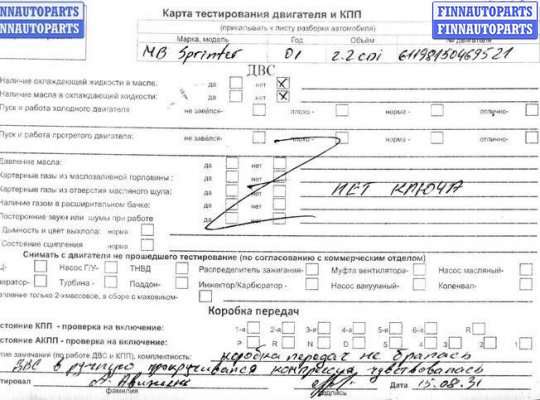 FINNAUTOPARTS
NNAUTOPARTS
FINNAUTOPARTS
FINNAUTOPARTS
Карта тестирования двигателя и КПП
(прикалывать к листу разборки автомобиля)
Марка, модель Год Объём № двигателя
MB Sprinter 01 2.2 CDI 61198150469521
ДВС
Наличие охлаждающей жидкости в масле: да нет X
Наличие масла в охлаждающей жидкости: да нет X
Пуск и работа холодного двигателя не завёлся- плохо - норма - отлично-
Пуск и работа прогретого двигателя: не завёлся- плохо - норма - отлично-
Давление масла: да нет
Картерные газы из маслозаливной горловины: да нет
Картерные газы из отверстия масляного щупа: да нет НЕТ КЛЮЧА
Наличие газом в расширительном бачке: да нет
Посторонние звуки или шумы при работе да нет
Дымность и цвет выхлопа: норма -
Состояние сцепления норма -
Снимать с двигателя не прошедшего тестирование (по согласованию с коммерческим отделом)
Насос Г/У- ТНВД Распределитель зажигания- Муфта вентилятора- Насос масляный-
Турбина - Поддон- Инжектор/Карбюратор - Насос вакуумный- Коленвал-
только 2-хмассовое, в сборе с маховиком-
Коробка передач
стояние КПП - проверка на включение: 1-я 2-я 3-я 4-я 5-я 6-я R
стояние АКПП - проверка на включение: P R N D S 4 3 2 1
замечания (по работе ДВС и КПП), комплектность: коробка передач не бралась
ДВС в ручную прокручивался компрессия чувствовалась
тировал фамилия подпись Дата 15.08.31